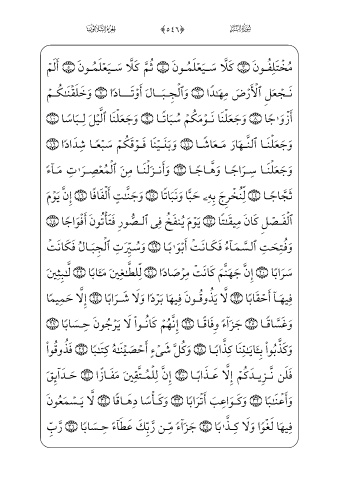 سُورَةُ النَّبَإِ ﴿٥٤٦﴾ الجُزْءُ الثَّلاَثُونَ
مُخْتَلِفُونَ ۝٣ كَلَّا سَيَعْلَمُونَ ۝٤ ثُمَّ كَلَّا سَيَعْلَمُونَ ۝٥ أَلَمْ
نَجْعَلِ ٱلْأَرْضَ مِهَـٰدًا ۝٦ وَٱلْجِبَالَ أَوْتَادًا ۝٧ وَخَلَقْنَـٰكُمْ
أَزْوَٰجًا ۝٨ وَجَعَلْنَا نَوْمَكُمْ سُبَاتًا ۝٩ وَجَعَلْنَا ٱلَّيْلَ لِبَاسًا ۝١٠
وَجَعَلْنَا ٱلنَّهَارَ مَعَاشًا ۝١١ وَبَنَيْنَا فَوْقَكُمْ سَبْعًا شِدَادًا ۝١٢
وَجَعَلْنَا سِرَاجًا وَهَّاجًا ۝١٣ وَأَنزَلْنَا مِنَ ٱلْمُعْصِرَٰتِ مَآءً
ثَجَّاجًا ۝١٤ لِّنُخْرِجَ بِهِۦ حَبًّا وَنَبَاتًا ۝١٥ وَجَنَّـٰتٍ أَلْفَافًا ۝١٦ إِنَّ يَوْمَ
ٱلْفَصْلِ كَانَ مِيقَـٰتًا ۝١٧ يَوْمَ يُنفَخُ فِى ٱلصُّورِ فَتَأْتُونَ أَفْوَاجًا ۝١٨
وَفُتِحَتِ ٱلسَّمَآءُ فَكَانَتْ أَبْوَٰبًا ۝١٩ وَسُيِّرَتِ ٱلْجِبَالُ فَكَانَتْ
سَرَابًا ۝٢٠ إِنَّ جَهَنَّمَ كَانَتْ مِرْصَادًا ۝٢١ لِّلطَّـٰغِينَ مَـَٔابًا ۝٢٢ لَّـٰبِثِينَ
فِيهَآ أَحْقَابًا ۝٢٣ لَّا يَذُوقُونَ فِيهَا بَرْدًا وَلَا شَرَابًا ۝٢٤ إِلَّا حَمِيمًا
وَغَسَّاقًا ۝٢٥ جَزَآءً وِفَاقًا ۝٢٦ إِنَّهُمْ كَانُوا۟ لَا يَرْجُونَ حِسَابًا ۝٢٧
وَكَذَّبُوا۟ بِـَٔايَـٰتِنَا كِذَّابًا ۝٢٨ وَكُلَّ شَىْءٍ أَحْصَيْنَـٰهُ كِتَـٰبًا ۝٢٩ فَذُوقُوا۟
فَلَن نَّزِيدَكُمْ إِلَّا عَذَابًا ۝٣٠ إِنَّ لِلْمُتَّقِينَ مَفَازًا ۝٣١ حَدَآئِقَ
وَأَعْنَـٰبًا ۝٣٢ وَكَوَاعِبَ أَتْرَابًا ۝٣٣ وَكَأْسًا دِهَاقًا ۝٣٤ لَّا يَسْمَعُونَ
فِيهَا لَغْوًا وَلَا كِذَّٰبًا ۝٣٥ جَزَآءً مِّن رَّبِّكَ عَطَآءً حِسَابًا ۝٣٦ رَّبِّ